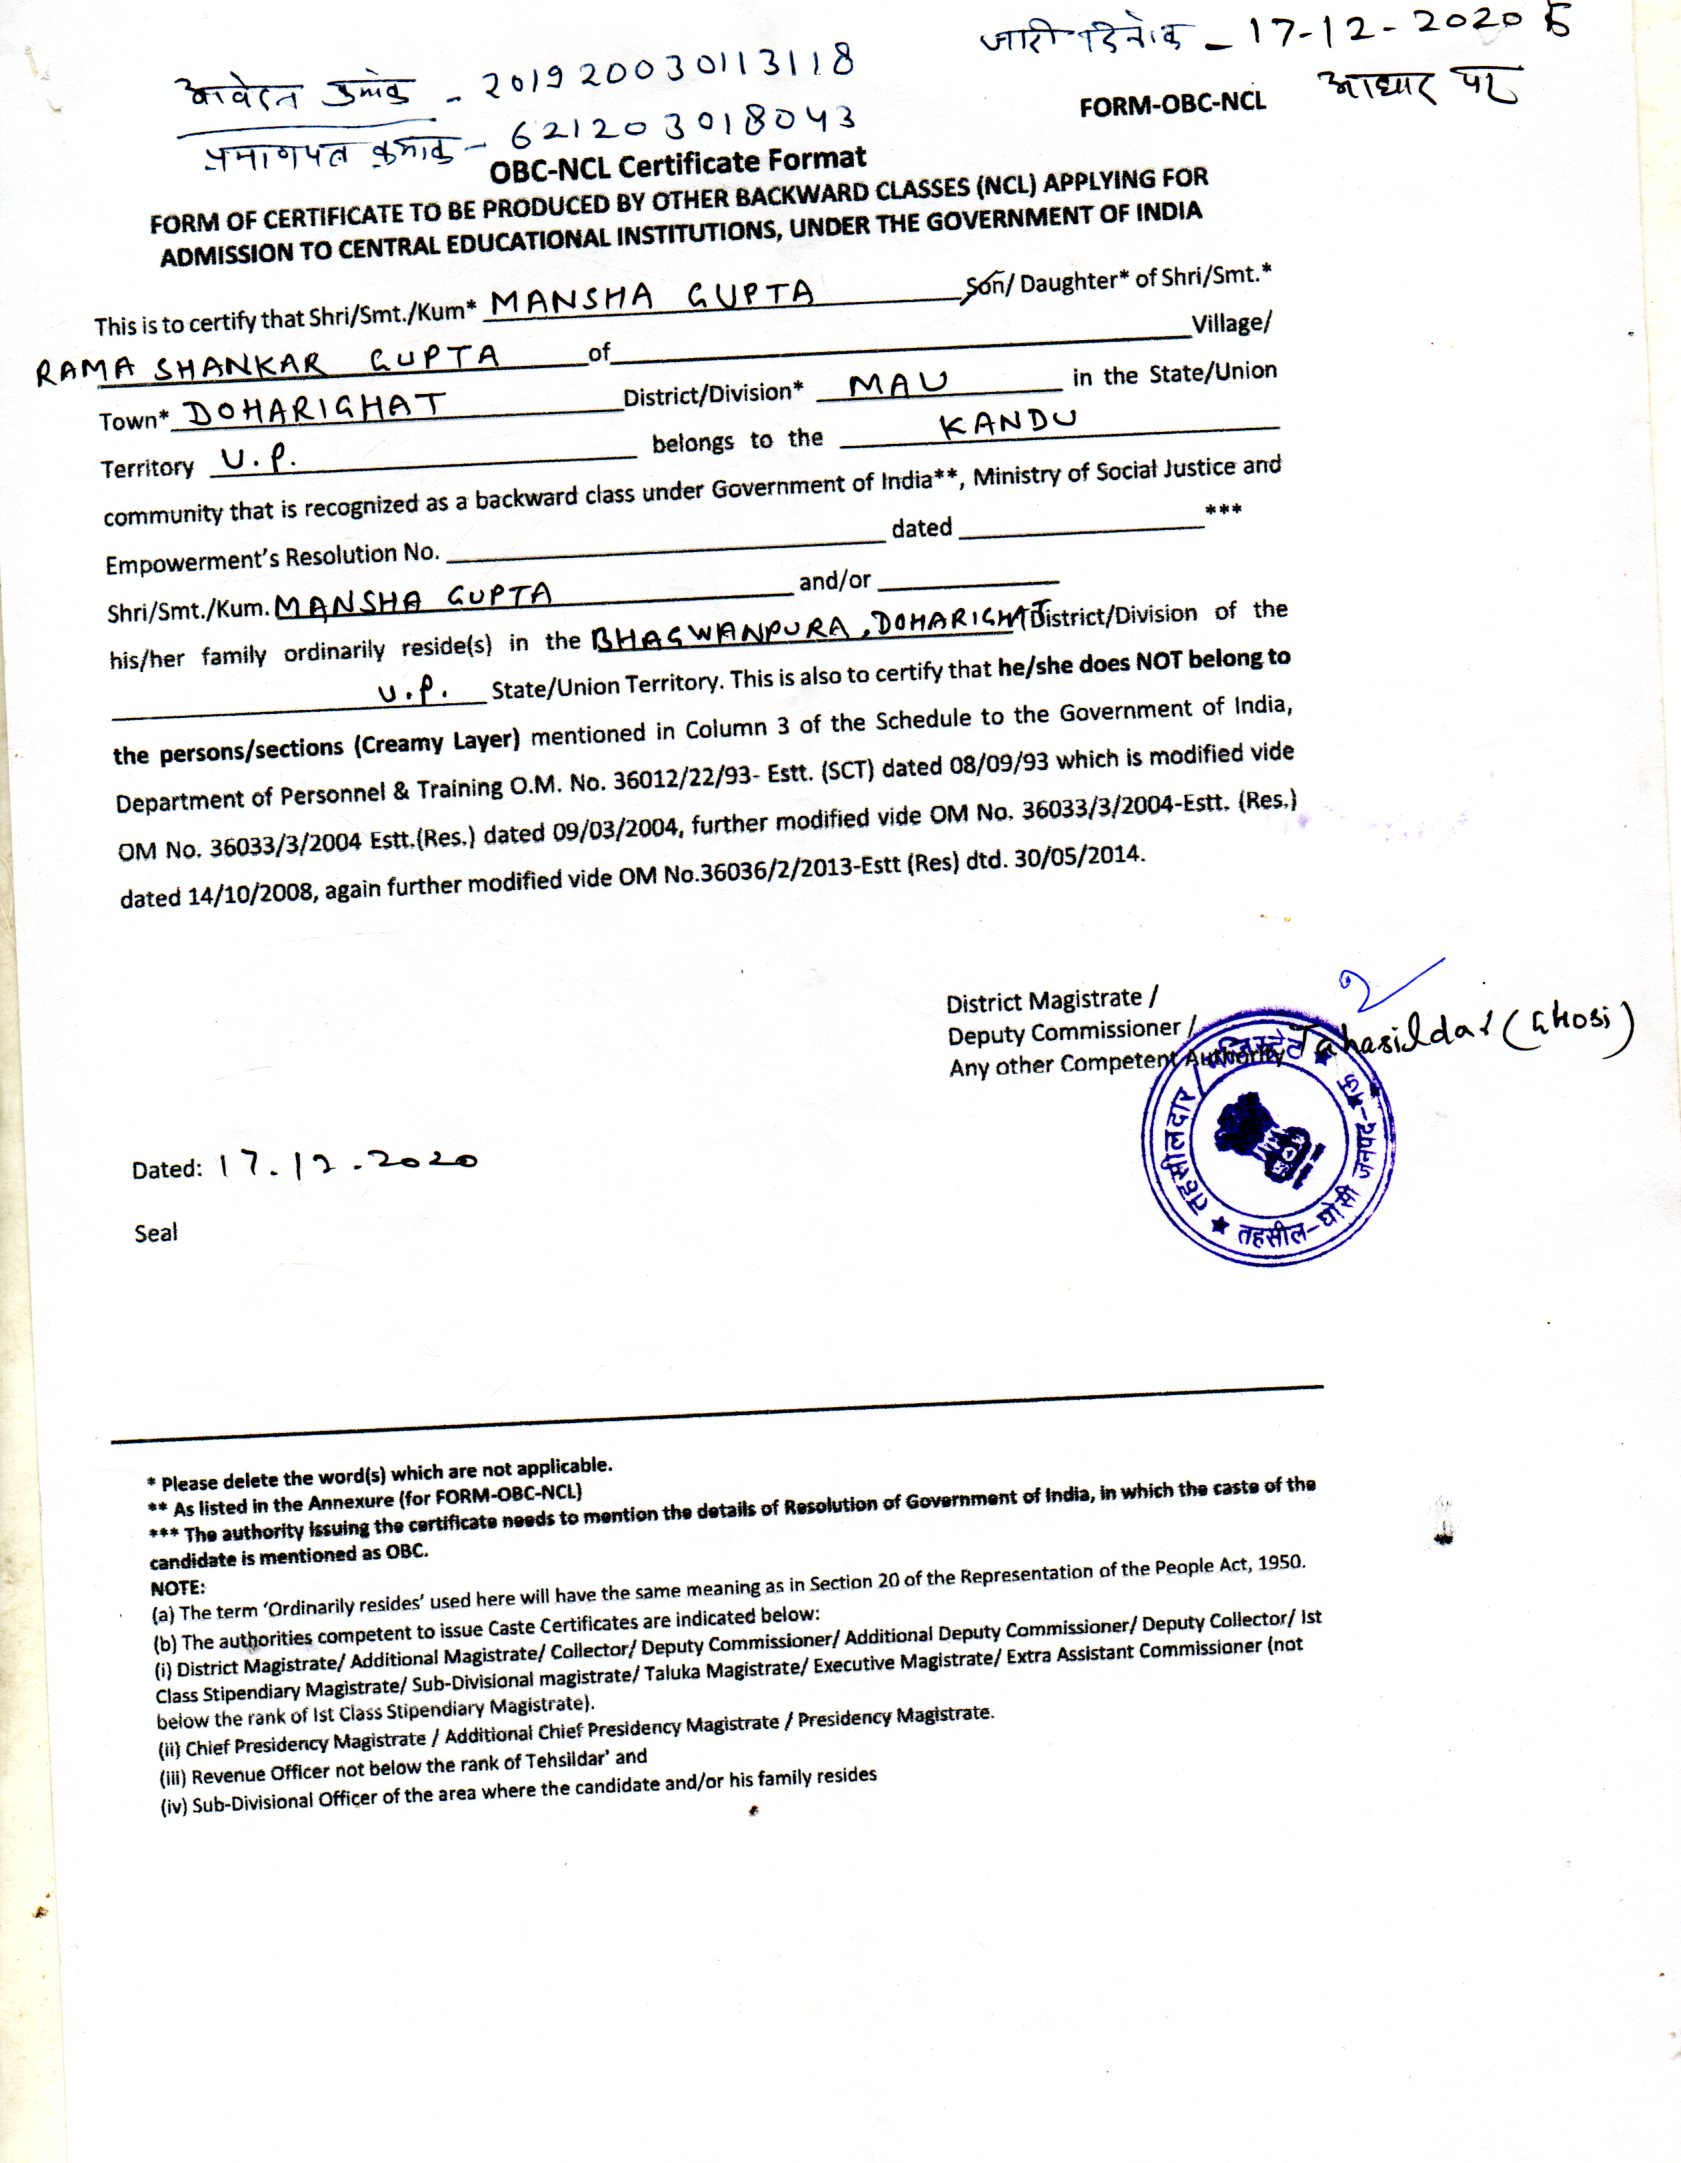 आवेदन क्रमांक - 201920030113118
जारी दिनांक - 17-12-2020 के
आधार पर
प्रमाणपत्र क्रमांक - 621203018043
FORM-OBC-NCL
OBC-NCL Certificate Format
FORM OF CERTIFICATE TO BE PRODUCED BY OTHER BACKWARD CLASSES (NCL) APPLYING FOR
ADMISSION TO CENTRAL EDUCATIONAL INSTITUTIONS, UNDER THE GOVERNMENT OF INDIA
This is to certify that Shri/Smt./Kum* MANSHA GUPTA Son/ Daughter* of Shri/Smt.*
RAMA SHANKAR GUPTA of Village/
Town* DOHARIGHAT District/Division* MAU in the State/Union
Territory U.P. belongs to the KANDU
community that is recognized as a backward class under Government of India**, Ministry of Social Justice and
Empowerment's Resolution No. dated ***
Shri/Smt./Kum. MANSHA GUPTA and/or
his/her family ordinarily reside(s) in the BHAGWANPURA, DOHARIGHAT District/Division of the
U.P. State/Union Territory. This is also to certify that he/she does NOT belong to
the persons/sections (Creamy Layer) mentioned in Column 3 of the Schedule to the Government of India,
Department of Personnel & Training O.M. No. 36012/22/93- Estt. (SCT) dated 08/09/93 which is modified vide
OM No. 36033/3/2004 Estt.(Res.) dated 09/03/2004, further modified vide OM No. 36033/3/2004-Estt. (Res.)
dated 14/10/2008, again further modified vide OM No.36036/2/2013-Estt (Res) dtd. 30/05/2014.
District Magistrate /
Deputy Commissioner /
Any other Competent Authority Tahasildar (Ghosi)
तहसीलदार/मजिस्ट्रेट
तहसील-घोसी जनपद-मऊ
Dated: 17.12.2020
Seal
* Please delete the word(s) which are not applicable.
** As listed in the Annexure (for FORM-OBC-NCL)
*** The authority issuing the certificate needs to mention the details of Resolution of Government of India, in which the caste of the
candidate is mentioned as OBC.
NOTE:
(a) The term 'Ordinarily resides' used here will have the same meaning as in Section 20 of the Representation of the People Act, 1950.
(b) The authorities competent to issue Caste Certificates are indicated below:
(i) District Magistrate/ Additional Magistrate/ Collector/ Deputy Commissioner/ Additional Deputy Commissioner/ Deputy Collector/ Ist
Class Stipendiary Magistrate/ Sub-Divisional magistrate/ Taluka Magistrate/ Executive Magistrate/ Extra Assistant Commissioner (not
below the rank of Ist Class Stipendiary Magistrate).
(ii) Chief Presidency Magistrate / Additional Chief Presidency Magistrate / Presidency Magistrate.
(iii) Revenue Officer not below the rank of Tehsildar' and
(iv) Sub-Divisional Officer of the area where the candidate and/or his family resides